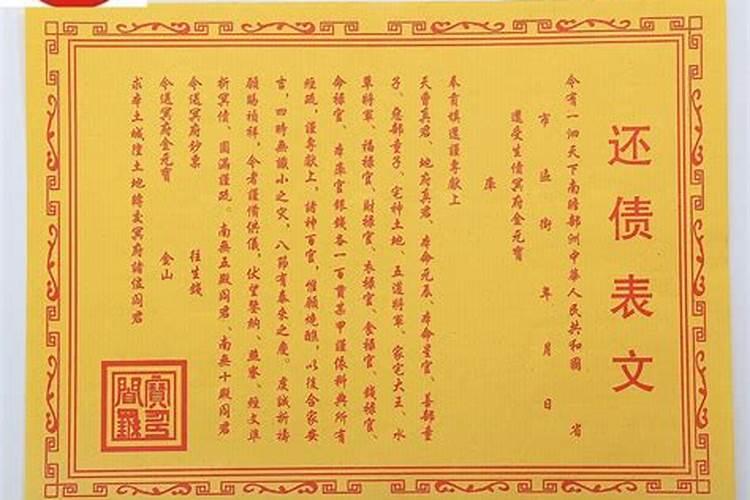 还债表文
今有一泗天下南瞻部洲中華人民共和國 省
市 區 街 年 月 日
還受生債冥府金元寶
庫
奉育填還謹專獻上
天曹真君、地府真君、本命元辰、本命星官、善部童
子、惡部童子、宅神土地、五道將軍、家宅大王、水
草將軍、福祿官、財祿官、衣祿官、食祿官、錢祿官、
命祿官、本庫官銀錢各一百貫某甲謹依科典所有
經疏，謹專獻上，諸神百官，惟願燒醮，以後合家安
吉，四時無識小之灾，八節有泰來之慶。虔誠祈禱
願賜禎祥，令者謹備供儀，伏望鑒納、照察、經文準
折冥債、圓滿謹疏。南無五殿阎君、南無十殿阎君
令送冥府鈔票 往生錢
令送冥府金元寶 金山
求本土城隍土地轉交冥府諸位阎君